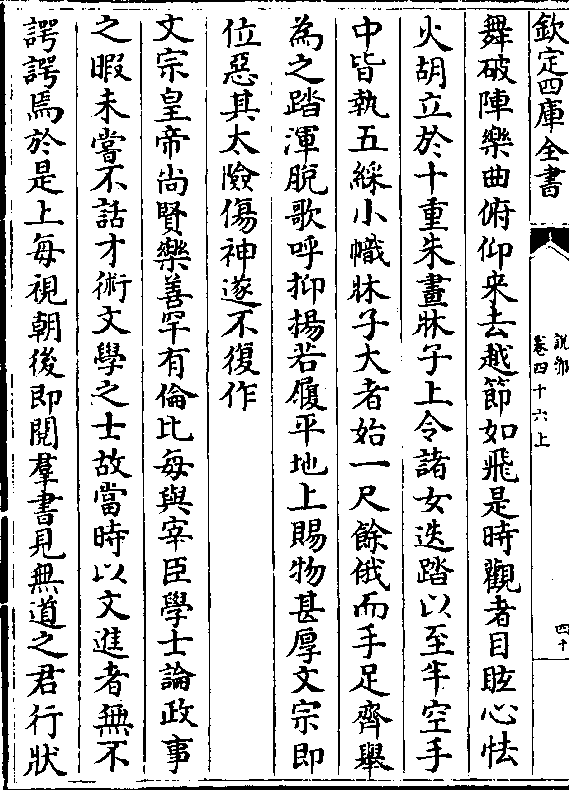 欽定四庫全書
說郛
卷四十六上
四十
舞破陣樂曲俯仰來去越節如飛是時觀者目眩心怯
火胡立於十重朱畫牀子上令諸女迭踏以至半空手
中皆執五綵小幟牀子大者始一尺餘俄而手足齊舉
為之踏渾脫歌呼抑揚若履平地上賜物甚厚文宗即
位惡其太險傷神遂不復作
文宗皇帝尚賢樂善罕有倫比每與宰臣學士論政事
之暇未嘗不話才術文學之士故當時以文進者無不
諤諤焉於是上每視朝後即閱羣書見無道之君行狀